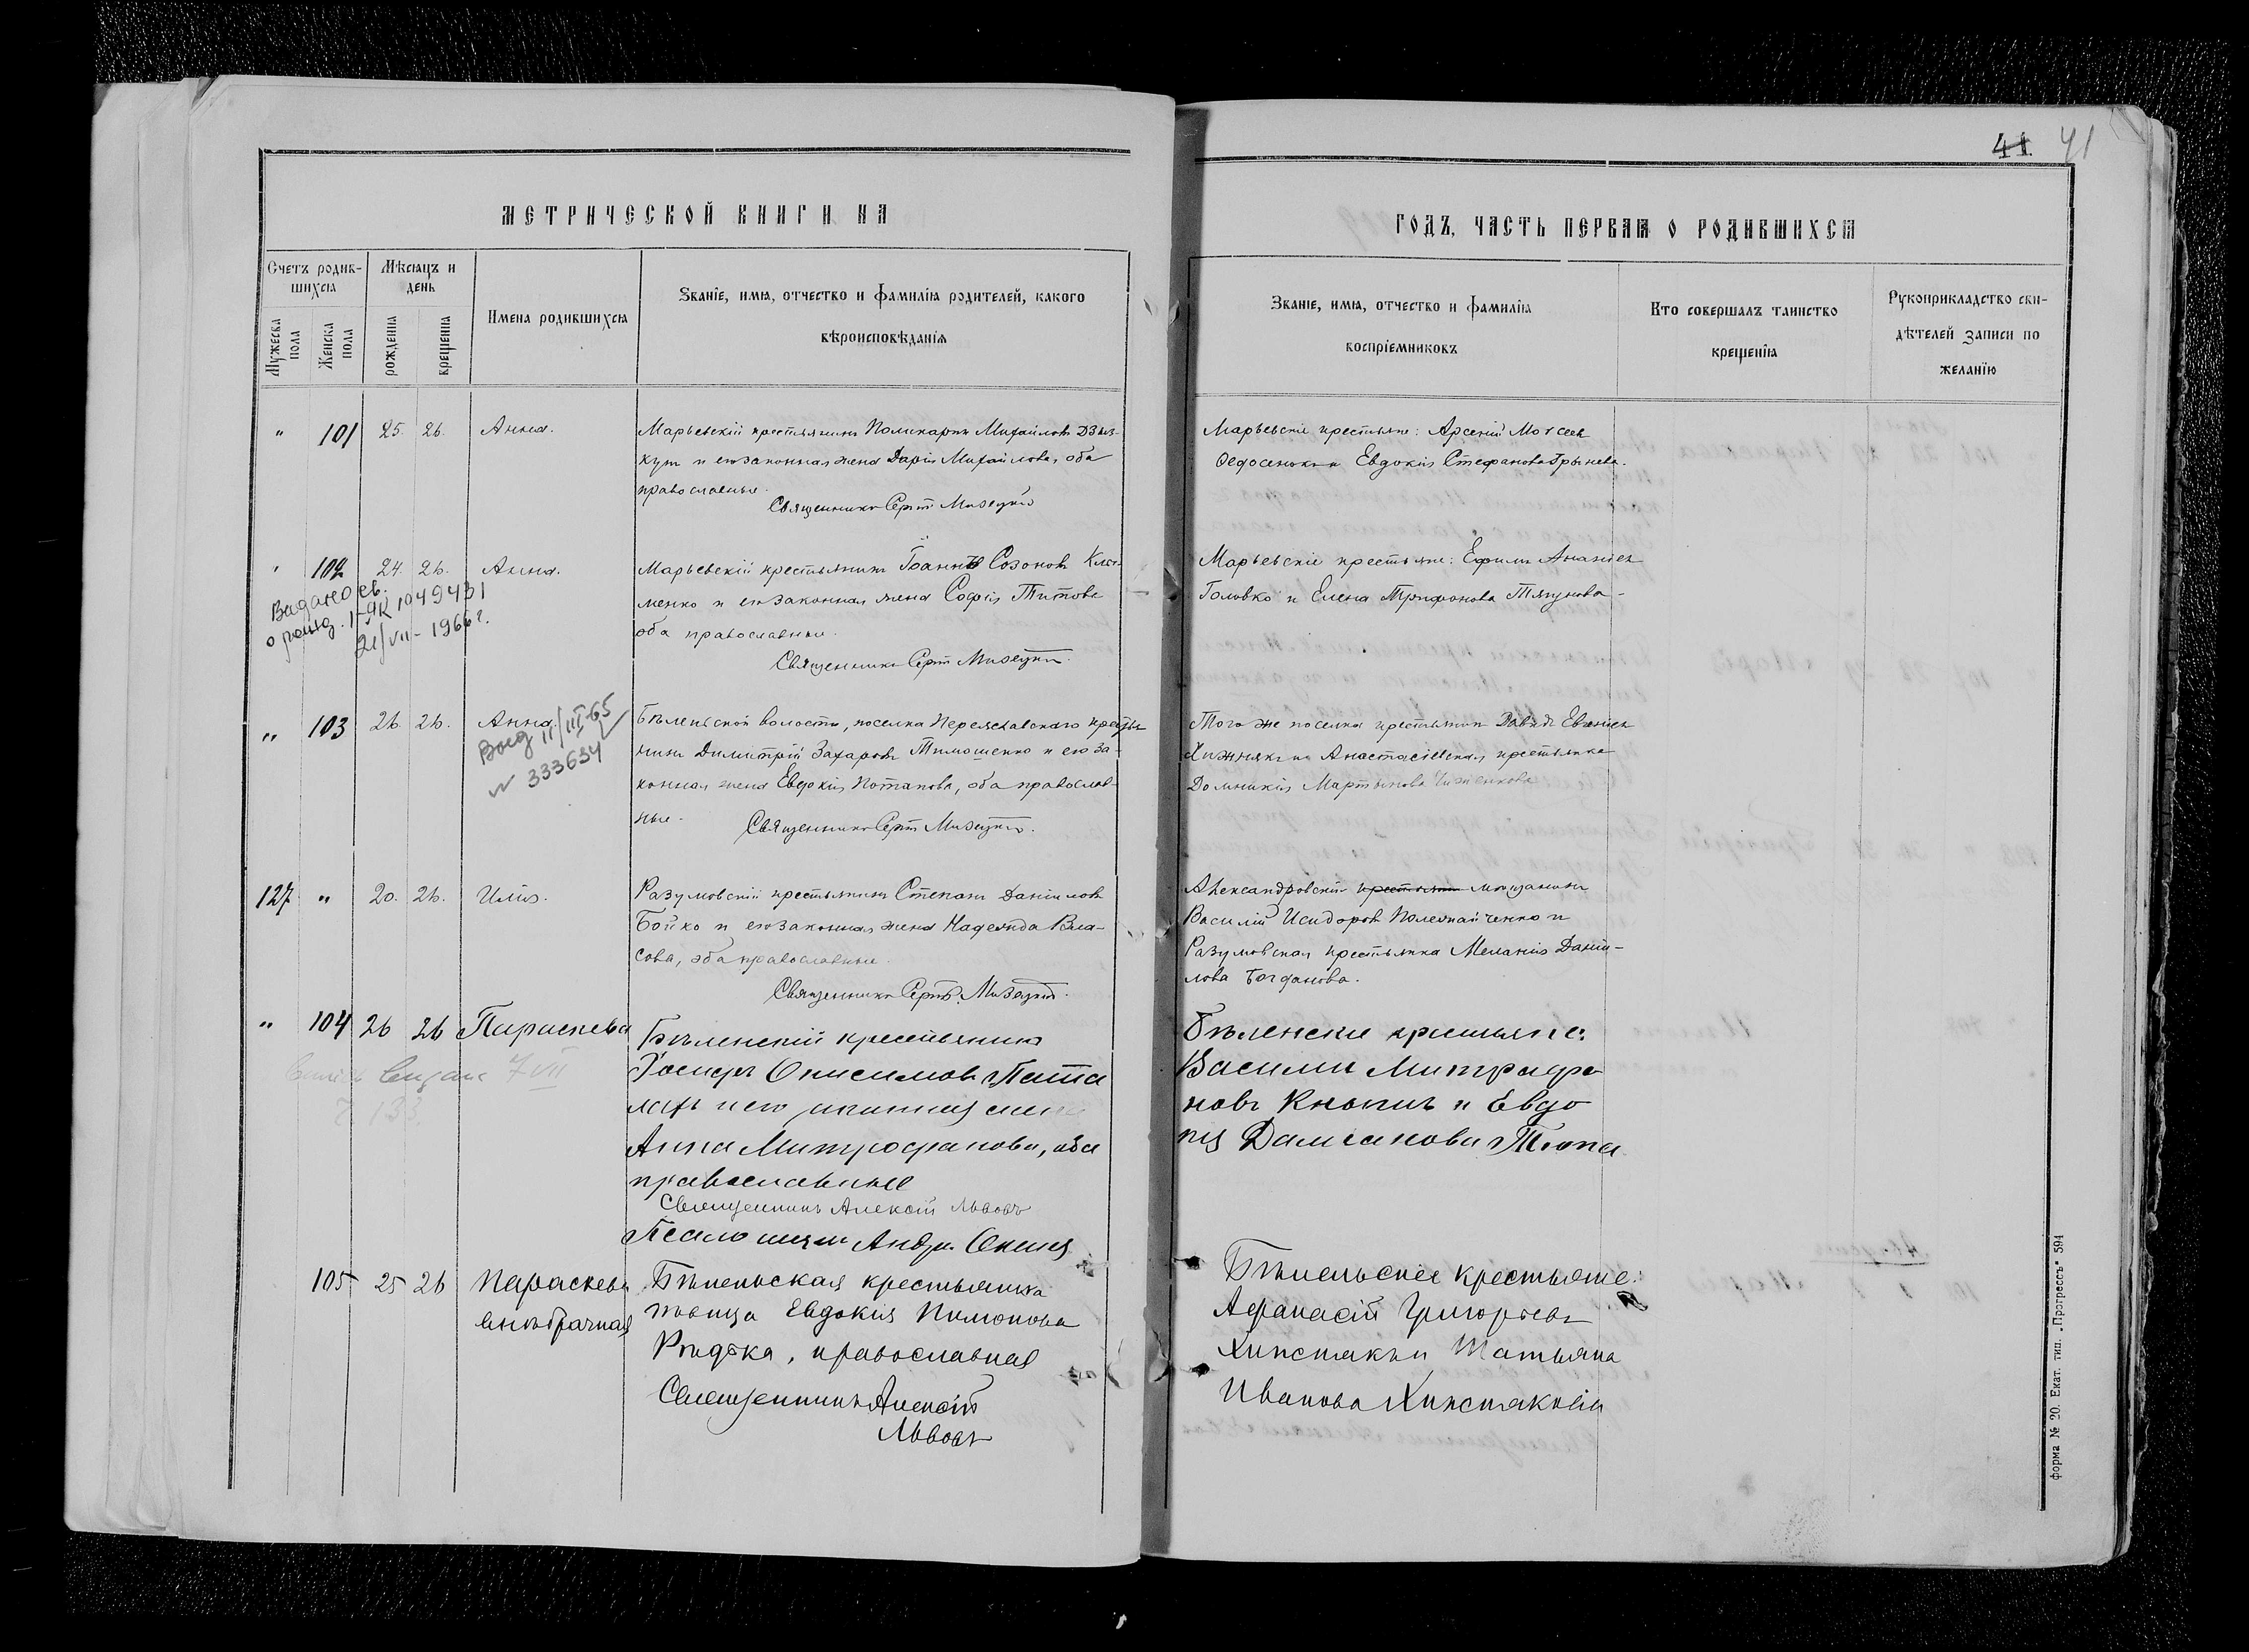 41 41
МЕТРИЧЕСКОЙ КНИГИ НА
ГОДЪ, ЧАСТЬ ПЕРВАЯ О РОДИВШИХСЯ
Счетъ родив-
шихся
Мужеска пола
Женска пола
Мѣсяцъ и
день
рожденія
крещенія
Имена родившихся
Званіе, имя, отчество и фамилія родителей, какого
вѣроисповѣданія
Званіе, имя, отчество и фамилія
воспріемниковъ
Кто совершалъ таинство
крещенія
Рукоприкладство сви-
дѣтелей записи по
желанію
" 101 25. 26. Анна.
Марьевскій крестьянинъ Поликарпъ Михайловъ Дзыз-
кут и его законная жена Дарія Михайлова, оба
православные.
Священникъ Сергій
Марьевскіе крестьяне: Арсеній Моѵсеев
Евдокія Стефанова
102 24. 26. Анна.
Видано св.
о рожд. I-ЯК 1049431
21/VII - 1966 г.
Марьевскій крестьянинъ Іоаннъ Созоновъ Кли-
менко и его законная жена Софія Титова
оба православные.
Священникъ Сергій
Марьевскіе крестьяне: Ефимъ Ананіев
Головко и Елена Трифонова
" 103 26. 26. Анна.
11/III-65
№ 333634
Бѣленьской волости, поселка Переяславскаго крестья-
нинъ Димитрій Захаровъ Тимошенко и его за-
конная жена Евдокія Потапова, оба православ-
ные.
Священникъ Сергій
Того же поселка крестьянинъ Давидъ
Хижнякъ и Анастасіевская крестьянка
Домникія Мартынова
127 " 20. 26. Илія.
Разумовскій крестьянинъ Стефанъ Даніиловъ
Бойко и его законная жена Надежда Вла-
сова, оба православные.
Священникъ Сергій
Александровскій крестьянинъ мѣщанинъ
Василій Исидоровъ и
Разумовская крестьянка Меланія Даніи-
лова Богданова.
" 104 26 26 Параскева
7 VII
Бѣленскій крестьянинъ
Іосифъ Онисимовъ
и его законная жена
Анна Митрофанова, оба
православные
Священникъ Алексій Львовъ
Псаломщикъ Андрей
Бѣленские крестьяне:
Василий Митрофа
новъ и Евдо
кия Дамианова
105 25 26 Параскева
внѣбрачная
Бѣленьская крестьянка
дѣвица Евдокія Пимонова
Рѣдька, православная
Священникъ Алексій
Львовъ
Бѣленьскіе крестьяне:
Афанасій Григорьевъ
Хижнякъ и Татьяна
Иванова Хижнякова
форма № 20. Екат. тип. „Прогрессъ" 594